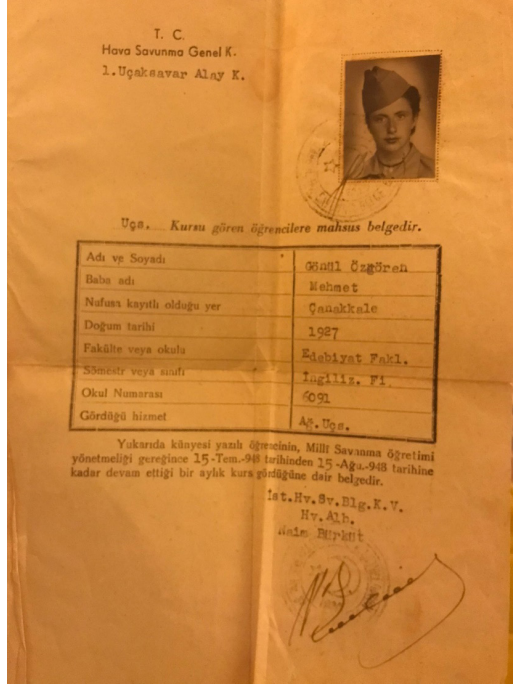 T. C.
Hava Savunma Genel K.
1.Uçaksavar Alay K.
Uçs. Kursu gören öğrencilere mahsus belgedir.
Adı ve Soyadı Gönül Özgören
Baba adı Mehmet
Nufusa kayıtlı olduğu yer Çanakkale
Doğum tarihi 1927
Fakülte veya okulu Edebiyat Fakl.
Sömestr veya sınıfı İngiliz. Fi
Okul Numarası 6091
Gördüğü hizmet Ağ.Uçs.
Yukarıda künyesi yazılı öğrencinin, Millî Savunma öğretimi
yönetmeliği gereğince 15-Tem.-948 tarihinden 15-Ağu.-948 tarihine
kadar devam ettiği bir aylık kurs gördüğüne dair belgedir.
İst.Hv.Sv.Blg.K.V.
Hv.Alb.
Naim Bürküt